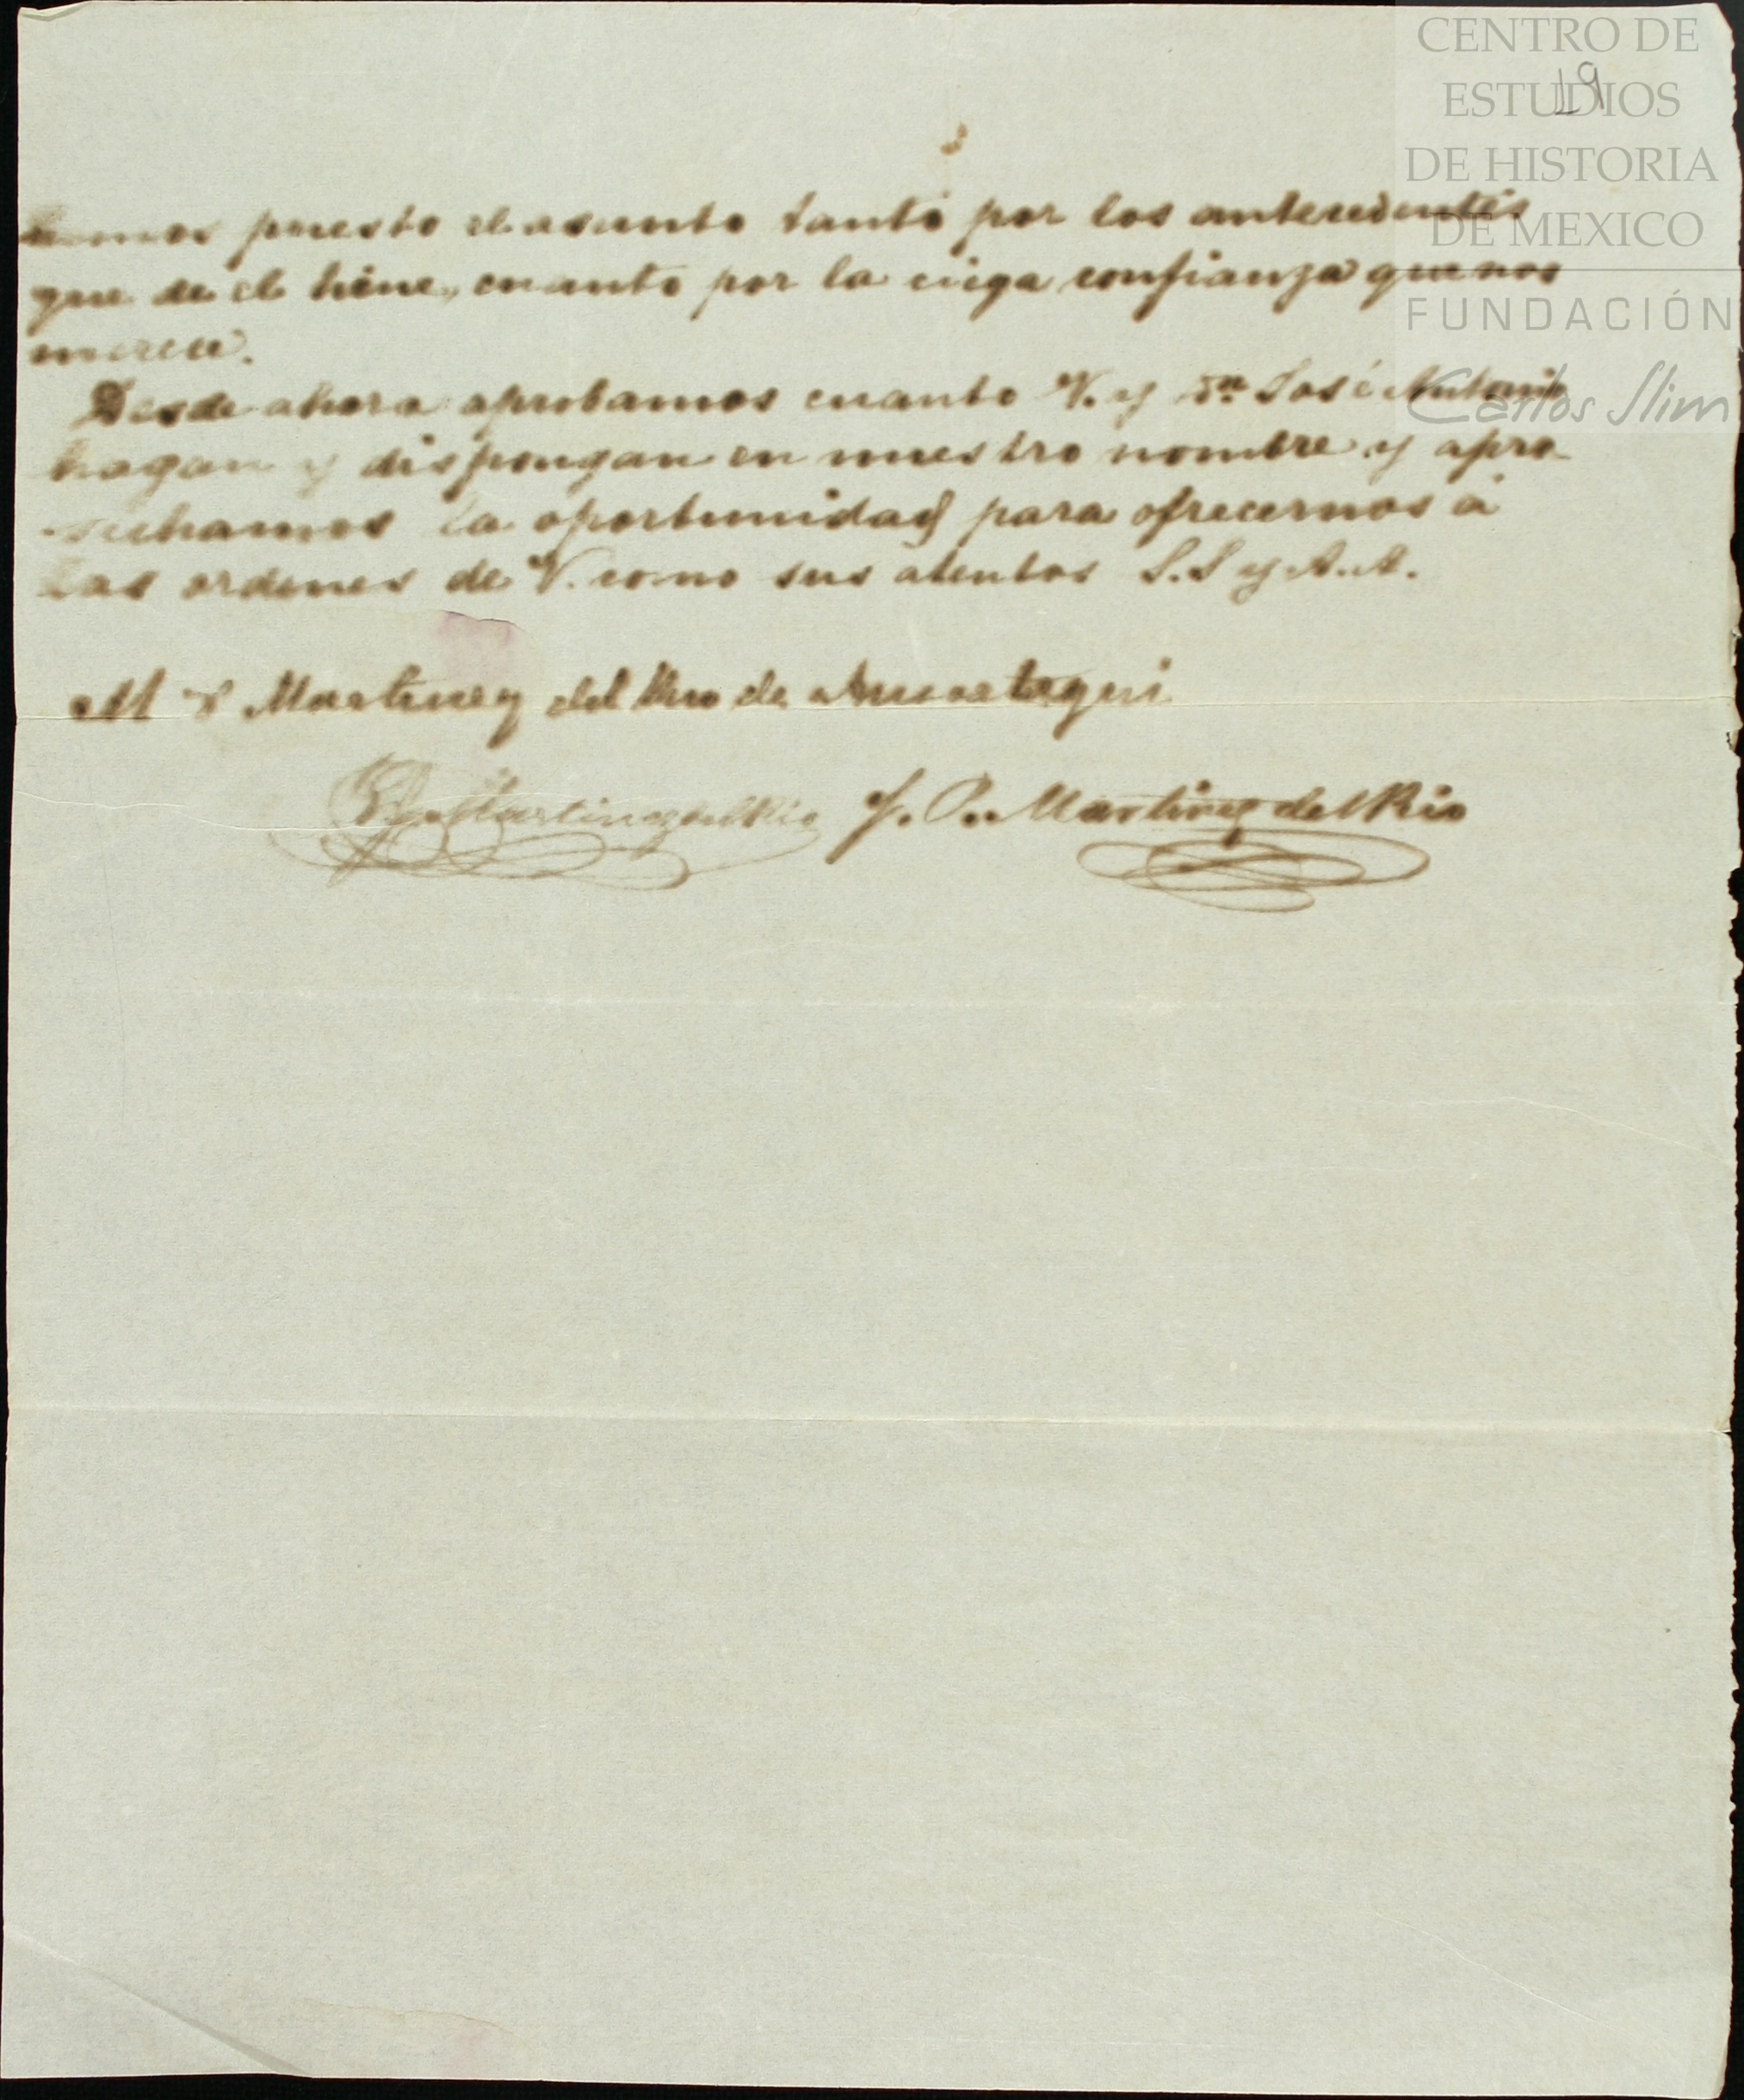 CENTRO DE
ESTUDIOS
DE HISTORIA
DE MEXICO
FUNDACIÓN
Carlos Slim
19
hemos puesto el asunto tanto por los antecedentes
que de el tiene, cuanto por la ciega confianza que nos
merece.
Desde ahora aprobamos cuanto V. y Dn José Antonio
hagan y dispongan en nuestro nombre y apro-
vechamos la oportunidad para ofrecernos á
las ordenes de V. como sus atentos S.S y A.A.
M Martinez del Rio de
Martinez del Rio J. P. Martinez del Rio